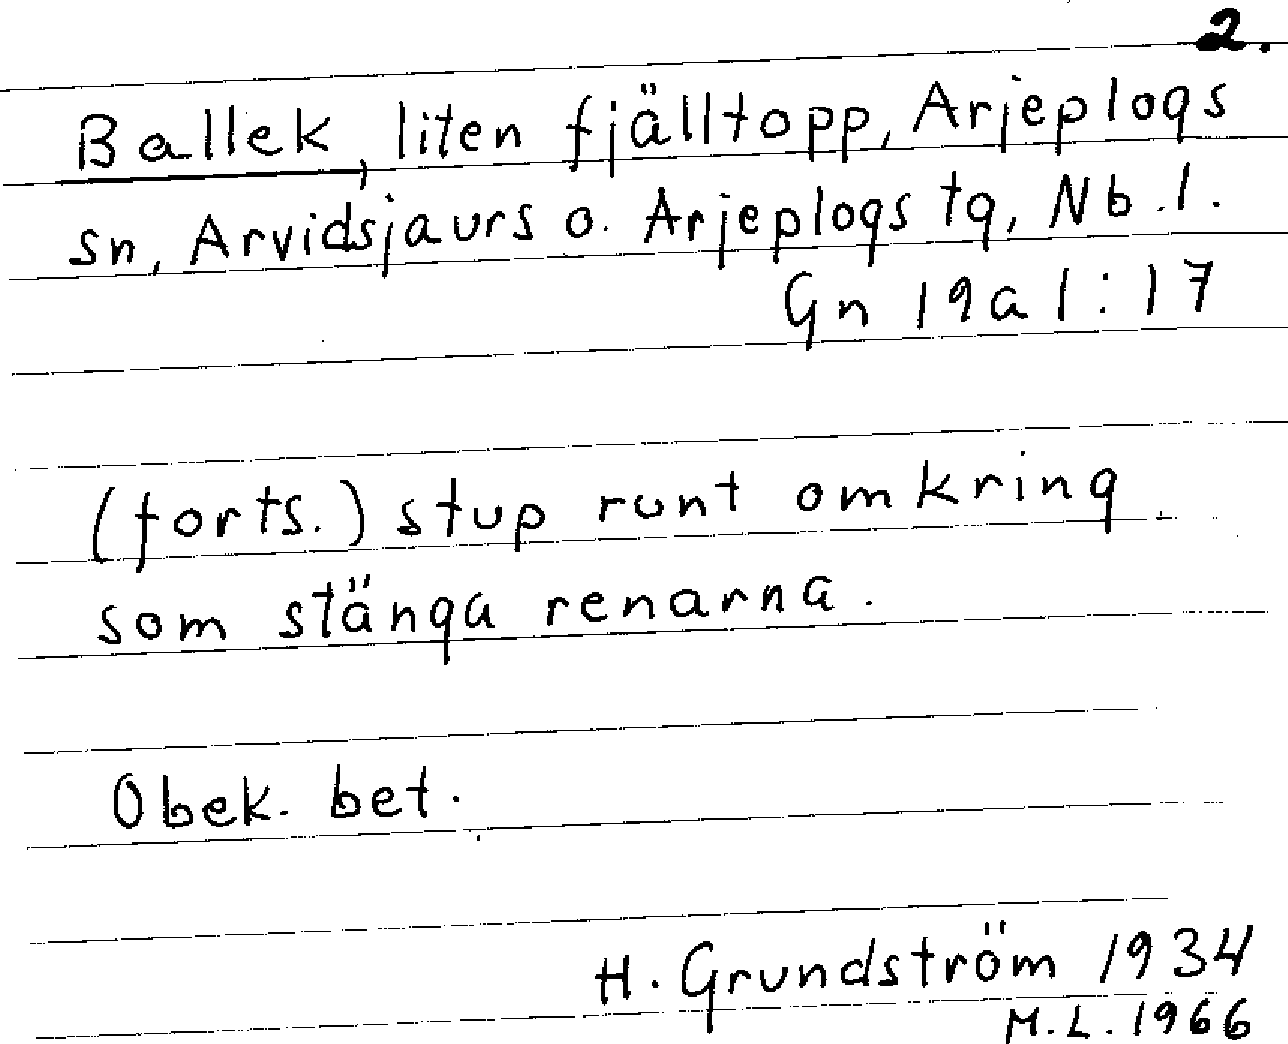 2.
Ballek, liten fjälltopp, Arjeplogs
sn, Arvidsjaurs o. Arjeplogs tg, Nb.l.
Gn 19a1:17
(forts.) stup runt omkring
som stänga renarna.
Obek. bet.
H. Grundström 1934
M.L. 1966